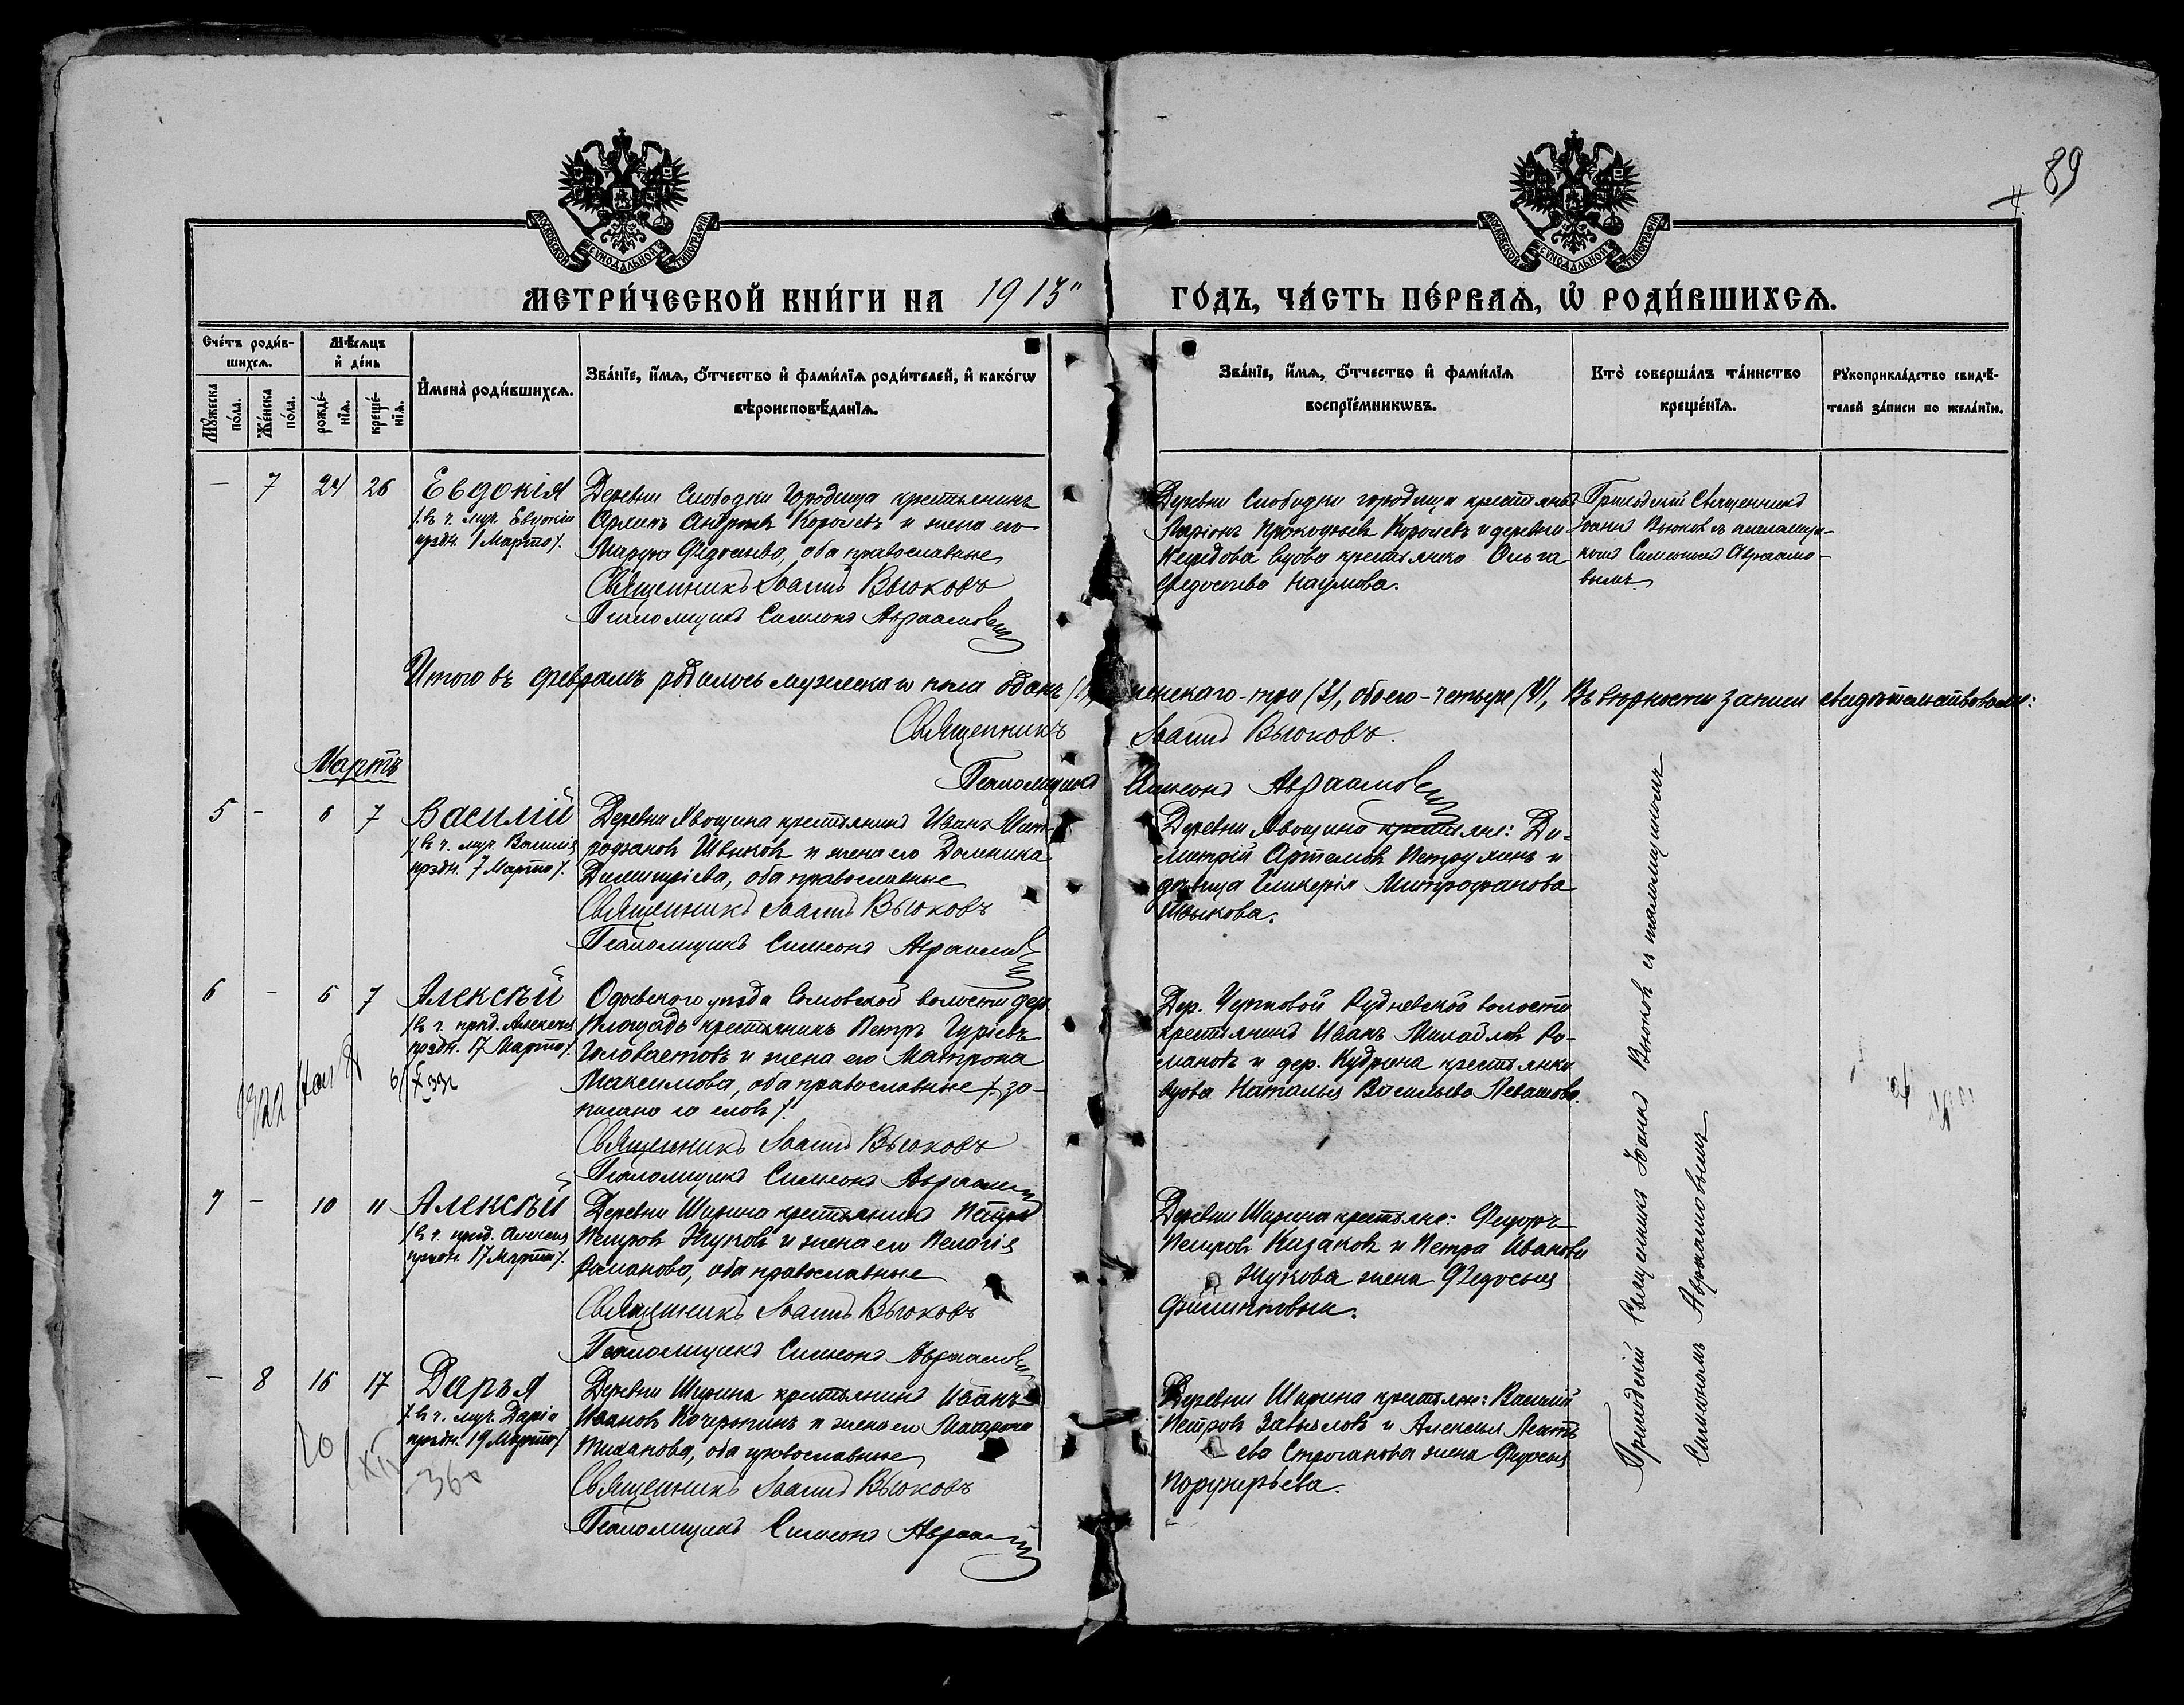 89
4.
МОСКОВСКОЙ СУНОДАЛЬНОЙ ТИПОГРАФІИ
МОСКОВСКОЙ СУНОДАЛЬНОЙ ТИПОГРАФІИ
МЕТРИ́ЧЕСКОЙ КНИ́ГИ НА 1913"
ГО́ДЪ, ЧА́СТЬ ПЕ́РВАѦ, Ѡ РОДИ́ВШИХСѦ.
Сче́тъ роди́в-
шихсѧ.
Мꙋ́жеска
по́ла.
Же́нска
по́ла.
Мѣ́сяцъ
и де́нь
рожде́-
нїѧ.
креще́-
нїѧ.
Имена̀ роди́вшихсѧ.
Зва́нїе, и́мѧ, о́тчество и фами́лїѧ роди́телей, и како́гѡ
вѣроисповѣ́данїѧ.
Зва́нїе, и́мѧ, о́тчество и фами́лїѧ
воспрїе́мникѡвъ.
Кто̀ соверша́лъ та́инство
креще́нїѧ.
Рꙋкоприкла́дство свидѣ́-
телей за́писи по жела́нїю.
— 7 24 26
Евдокія
/въ ч. муч. Евдокіи
праздн. 1 Марта/.
Деревни Слободки Городища крестьянинъ
Архипъ Андреевъ Королевъ и жена его
Марѳа Ѳедосьева, оба православные
Священникъ Іоаннъ Вьюковъ
Псаломщикъ Симеонъ Авраамовъ
Деревни Слободки городища крестьянинъ
Ларіонъ Прокофьевъ Королевъ и деревни
вдова крестьянка Ольга
Ѳедосьева Наумова.
Приходскій Священникъ
Іоаннъ Вьюковъ съ псаломщи-
комъ Симеономъ Авраамо-
вымъ
Итого въ февралѣ родилось мужескаго пола одинъ (1), женскаго - три (3), обоего - четыре (4), Въ вѣрности записи свидѣтельствовали:
Священникъ Іоаннъ Вьюковъ.
Псаломщикъ Симеонъ Авраамовъ
Мартъ
5 - 6 7
Василій
/въ ч. муч. Василія
праздн. 7 Марта/.
Деревни Явощина крестьянинъ Иванъ Мит-
рофановъ Швыковъ и жена его Домника
Димитріева, оба православные
Священникъ Іоаннъ Вьюковъ
Псаломщикъ Симеонъ Авраамовъ
Деревни Явощина крестьяне: Ди-
митрій Артемовъ Петрухинъ и
дѣвица Гликерія Митрофанова
Швыкова.
6 - 6 7
Алексѣй
/въ ч. прпд. Алексія
праздн. 17 Марта/.
Одоевскаго уѣзда Сомовской волости дер.
Площадь крестьянинъ Петръ Гурьевъ
Головастовъ и жена его Матрона
Максимова, оба православные /за-
писано со словъ/.
Священникъ Іоаннъ Вьюковъ
Псаломщикъ Симеонъ Авраамовъ
Дер. Чертковой Рудневской волости
крестьянинъ Иванъ Михайловъ Ро-
мановъ и дер. Кудрина крестьянка
вдова Наталья Васильева Левашова.
7 - 10 11
Алексѣй
/въ ч. прпд. Алексія
праздн. 17 Марта/.
Деревни Ширина крестьянинъ Петръ
Петровъ Жуковъ и жена его Пелагія
Романова, оба православные
Священникъ Іоаннъ Вьюковъ
Псаломщикъ Симеонъ Авраамовъ
Деревни Ширина крестьяне: Ѳедоръ
Петровъ Казаковъ и Петра Иванова
Жукова жена Ѳедосья
Филиппова.
- 8 16 17
Дарья
/въ ч. муч. Даріи
праздн. 19 Марта/
Деревни Ширина крестьянинъ Иванъ
Ивановъ Кочережкинъ и жена его Матрона
Тиханова, оба православные
Священникъ Іоаннъ Вьюковъ
Псаломщикъ Симеонъ Авраамовъ
Деревни Ширина крестьяне: Василій
Петровъ Завьяловъ и Алексѣя Леонть-
ева Строганова жена Ѳедосья
Порфирьева.
Приходскій Священникъ Іоаннъ Вьюковъ съ псаломщикомъ
Симеономъ Авраамовымъ